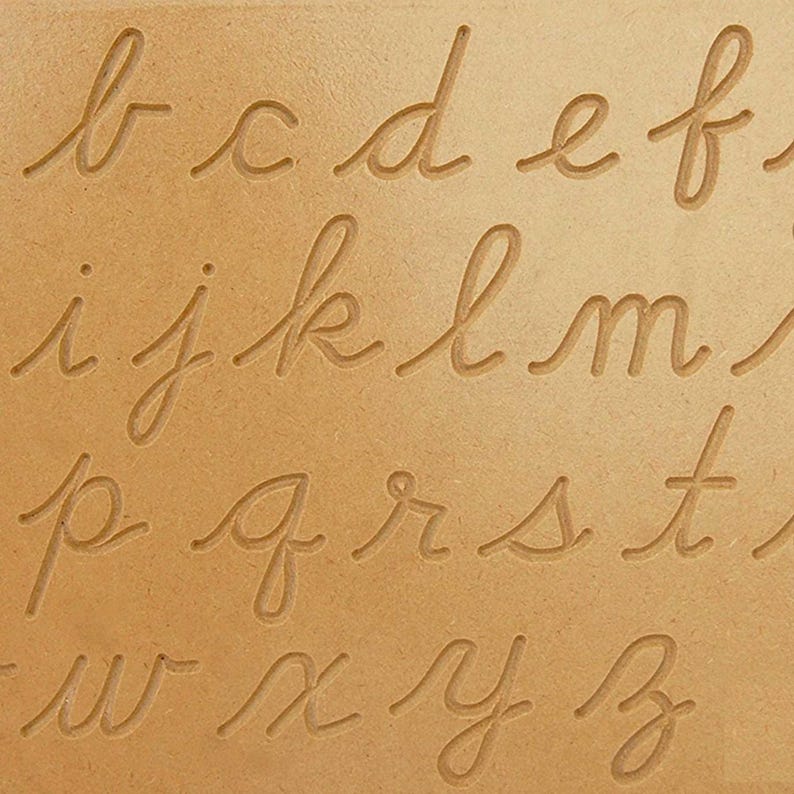 b c d e f
i j k l m
p q r s t
w x y z